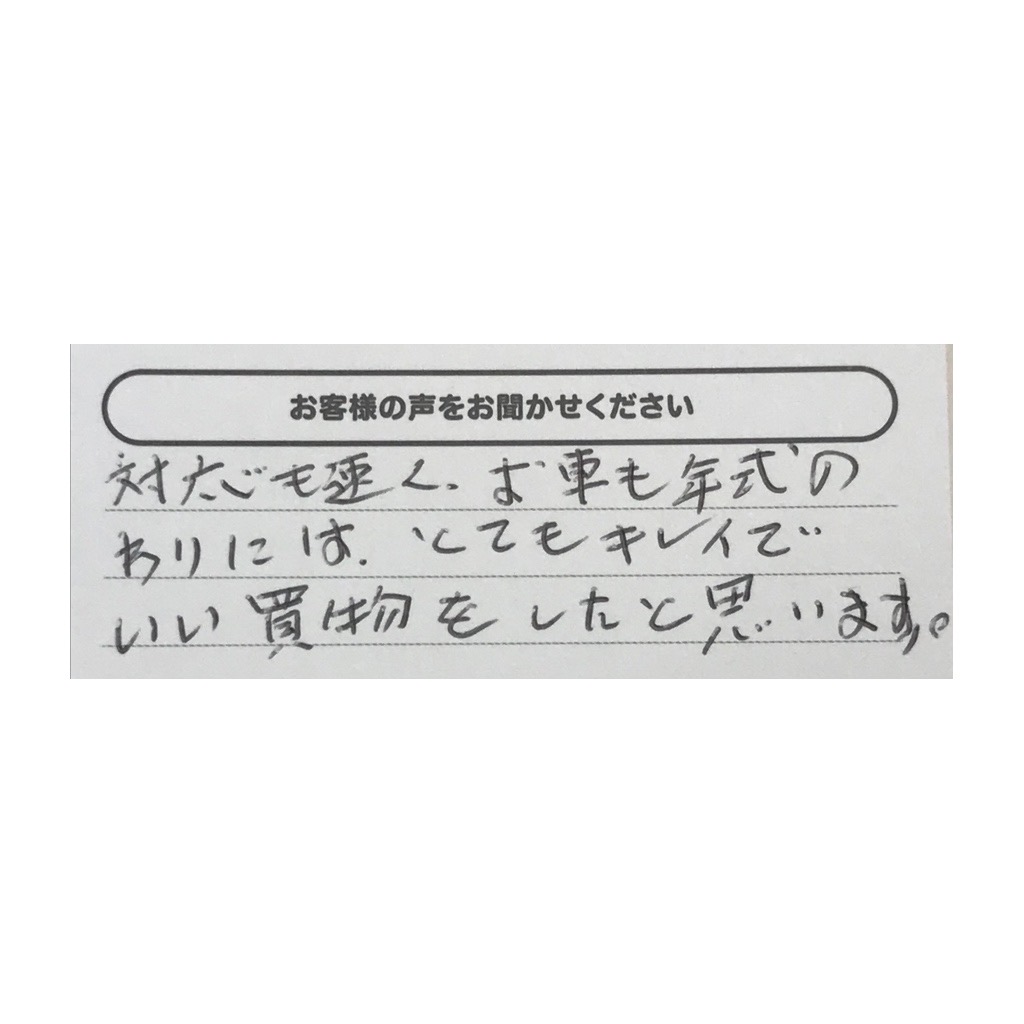 お客様の声をお聞かせください
対応も速く、お車も年式の
わりには、とてもキレイで
いい買物をしたと思います。